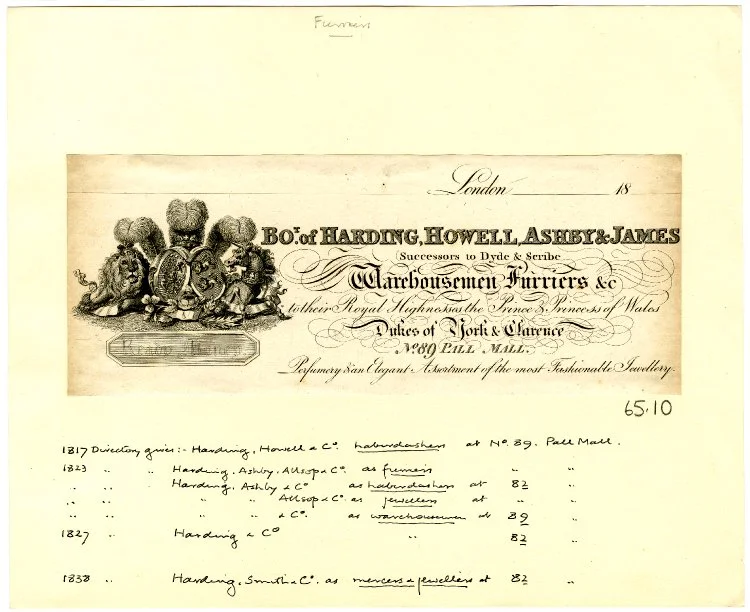 Furriers
London 18
BOT. of HARDING, HOWELL, ASHBY & JAMES
Successors to Dyde & Scribe
Warehousemen Furriers &c
to their Royal Highnesses the Prince & Princess of Wales
Dukes of York & Clarence
No. 89 PALL MALL.
Perfumery & an Elegant Assortment of the most Fashionable Jewellery.
Ready Money
65.10
1817 Directory gives :- Harding, Howell & Co. haberdashers at No. 89. Pall Mall.
1823 " " Harding, Ashby, Allsop & Co. as furriers " "
" " Harding, Ashby & Co as haberdashers at 82 "
" " " " Allsop & Co. as jewellers at " "
" " " " & Co. as warehousemen at 89 "
1827 " Harding & Co " 82 "
1838 " Harding, Smith & Co. as mercers & jewellers at 82 "